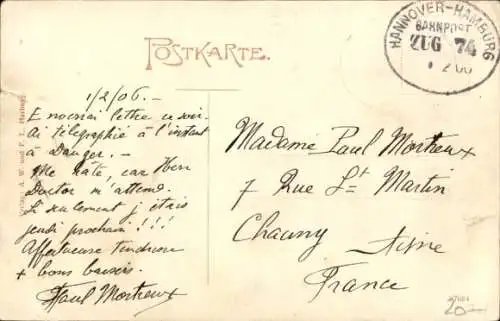 POSTKARTE.
HANNOVER-HAMBURG
BAHNPOST
ZUG 74
1 2 06
1/2/06. —
Enverrai lettre ce soir.
Ai télégraphié à l'instant
à Danger. —
Me hâte, car Herr
Doctor m'attend.
Si seulement j'étais
jeudi prochain!!!
Affectueuse tendresse
+ bons baisers.
Paul Mortreux
Madame Paul Mortreux
7 Rue St Martin
Chauny
Aisne
France
20—